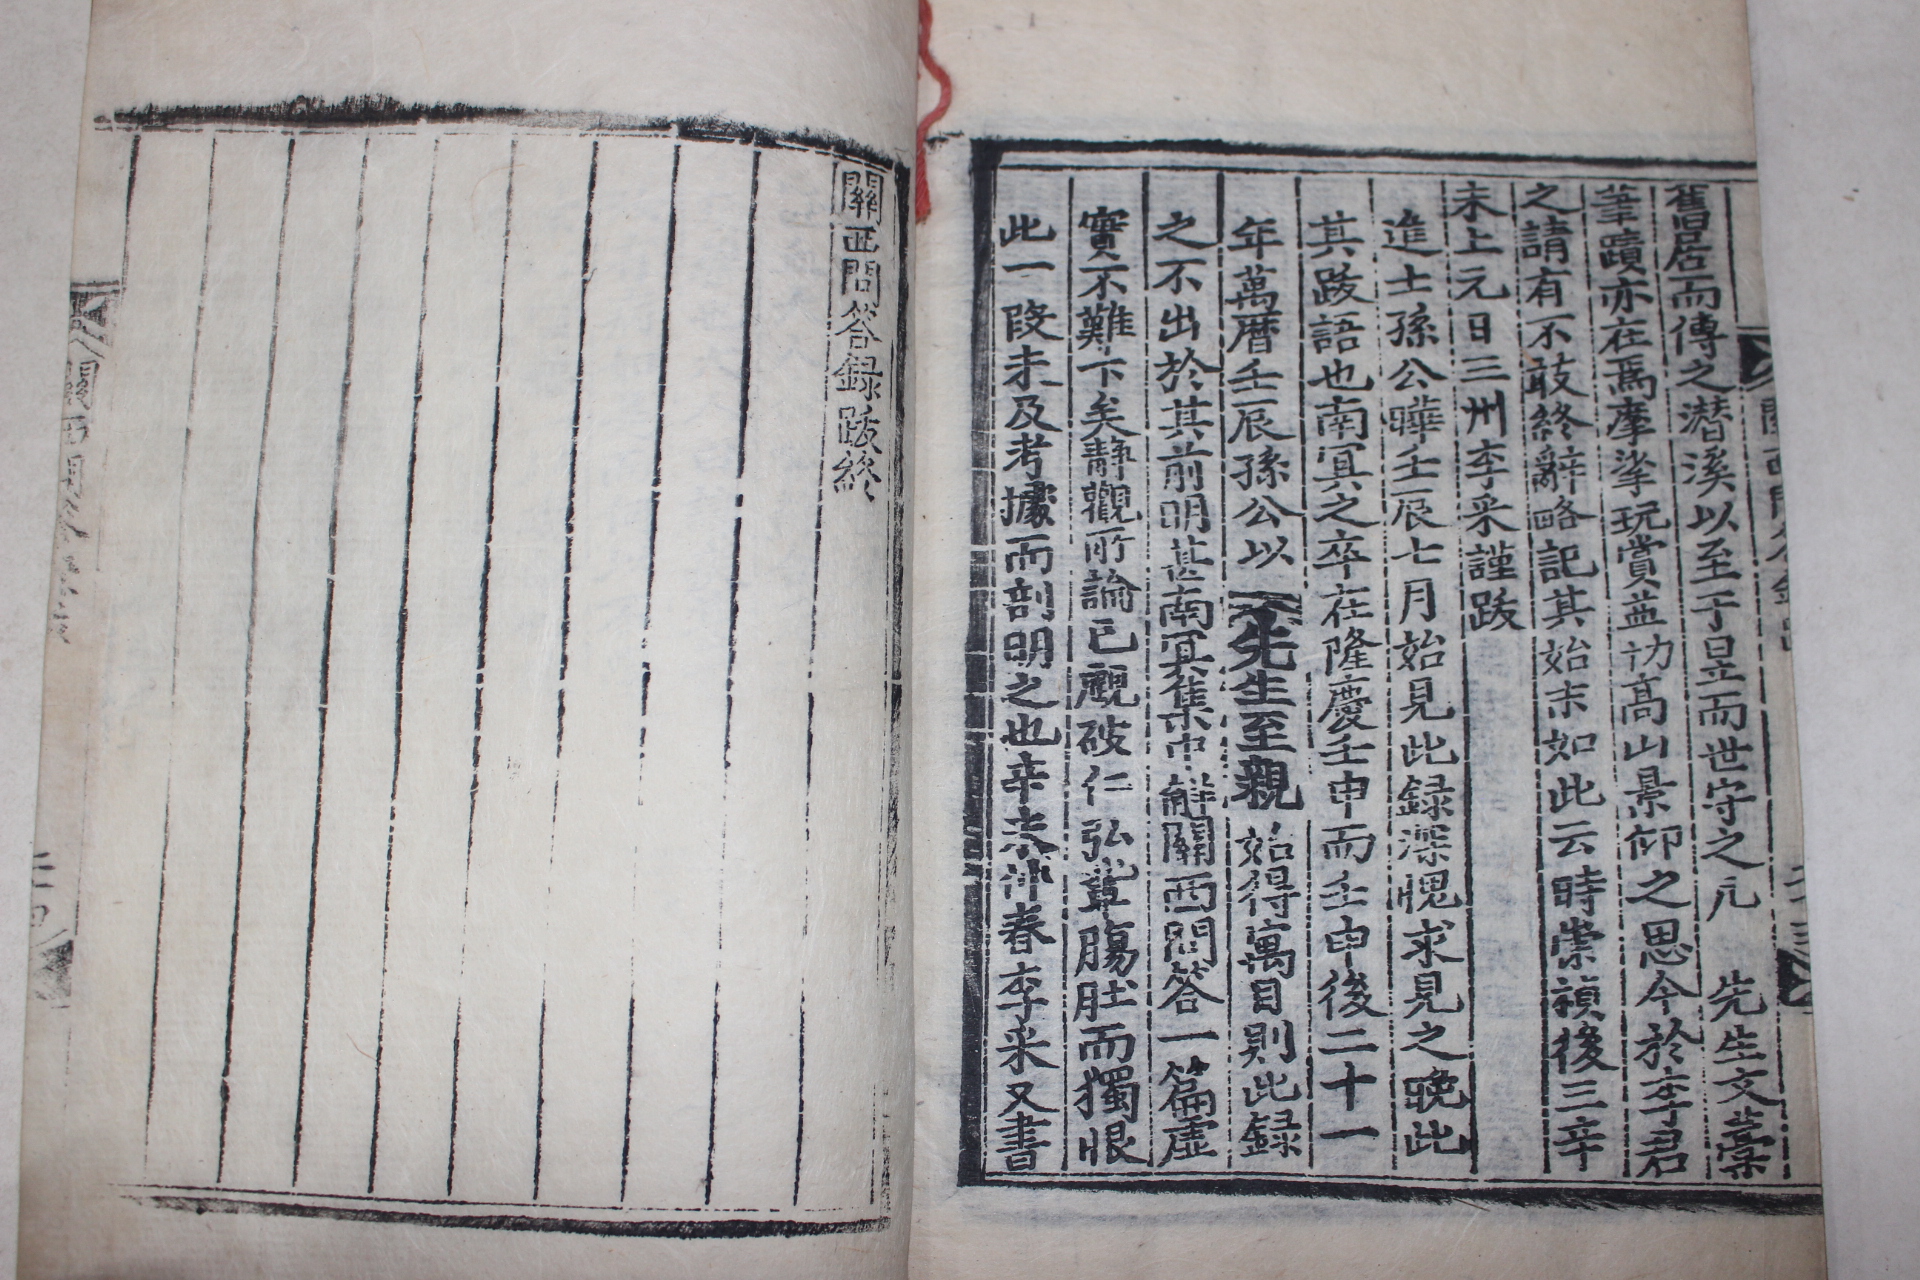 舊居而傳之潛溪以至于昰而世守之凡　先生文藁
筆蹟亦在焉摩挲玩賞益切高山景仰之思今於李君
之請有不敢終辭略記其始末如此云時崇禎後三辛
未上元日三州李采謹跋
進士孫公曄壬辰七月始見此録深愧求見之晩此
其跋語也南冥之卒在隆慶壬申而壬申後二十一
年萬曆壬辰孫公以先生至親始得寓目則此録
之不出於其前明甚南冥集中觧關西問答一篇虛
實不難下矣靜觀所論已覰破仁弘輩腸肚而獨恨
此一段未及考據而剖明之也辛未仲春李采又書
關西問答録跋終
關西問答
二十四